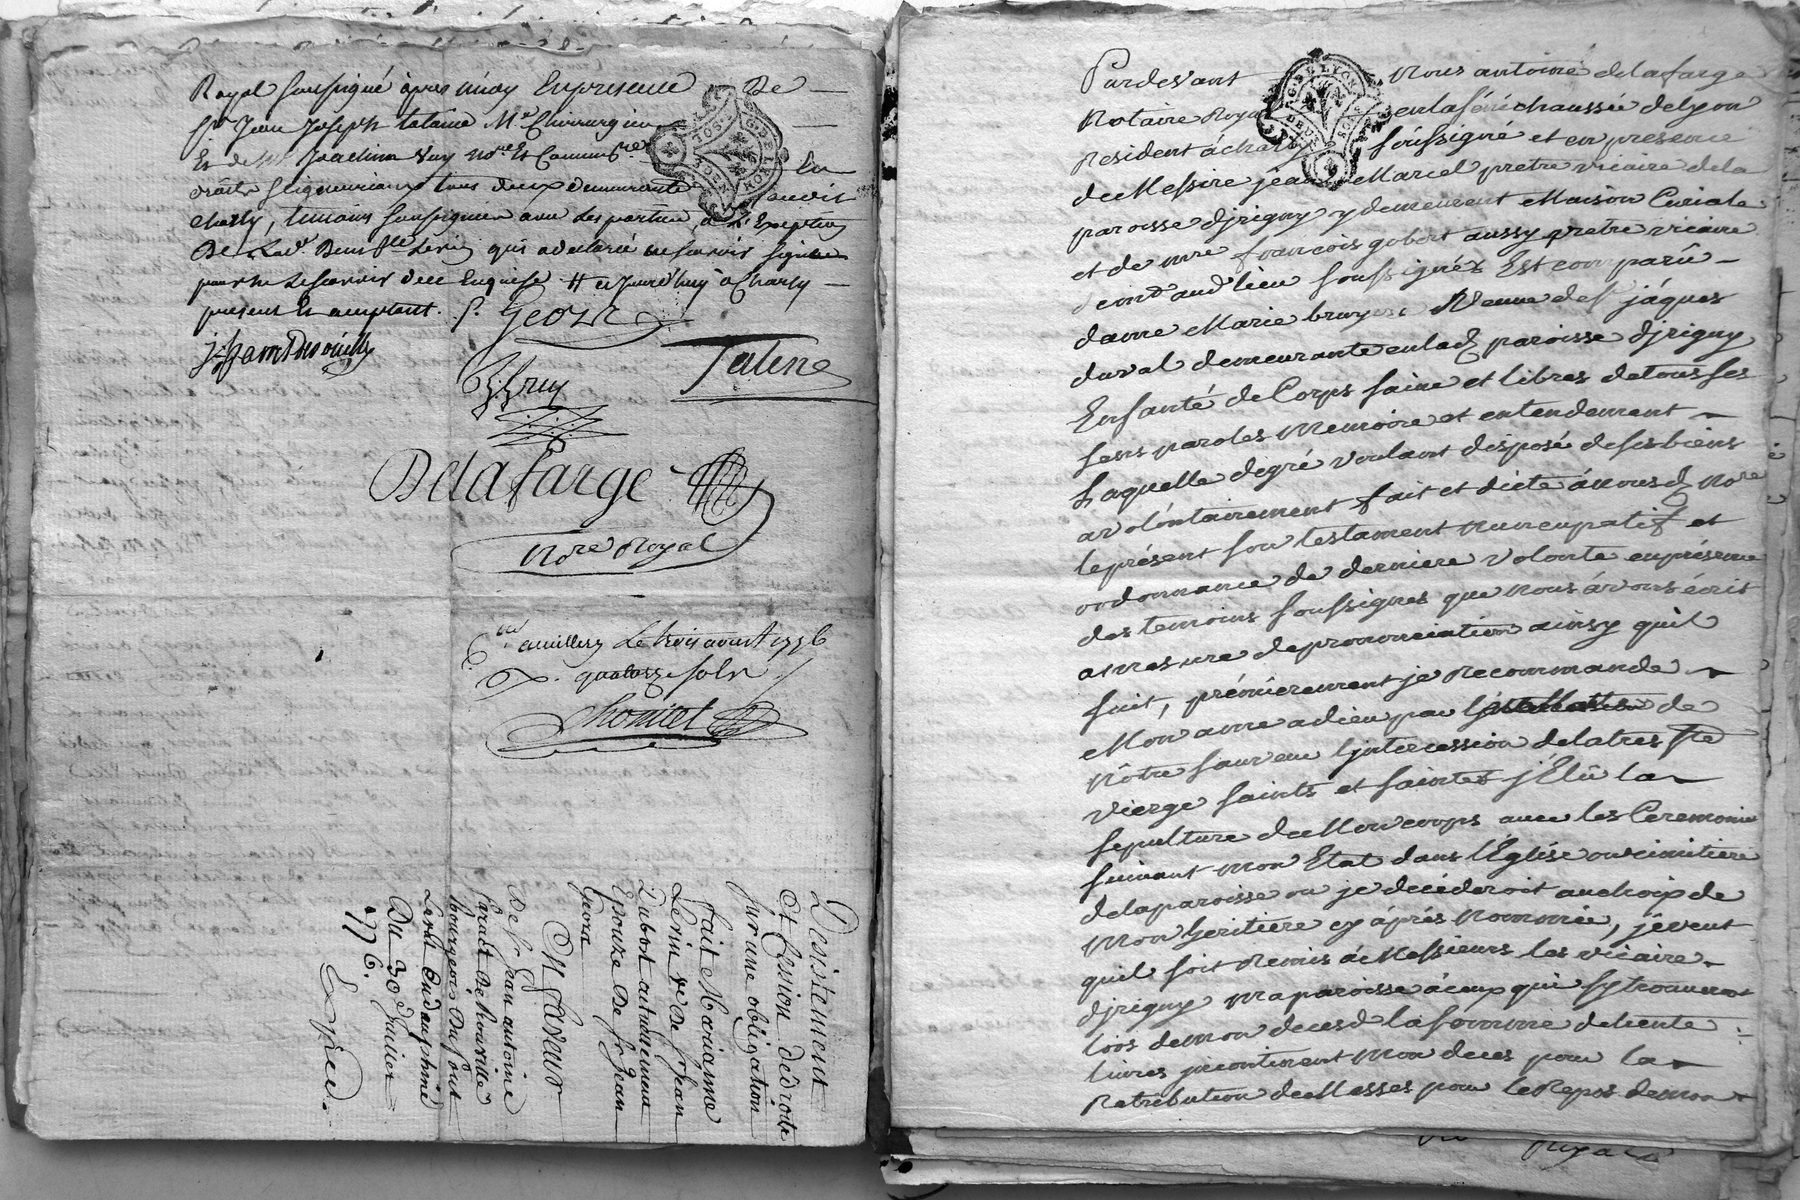 Royal soussigné apres midy En presence De
Sr Jean Joseph talaine Me Chirurgien
Et de Joachim Vuy nore Et Commre En
droits seigneuriaux tous deux demeurants
charly, temoins soussignier avec Les parties, a L'Exception
De Lad. qui a declaré ne scavoir signer
pour ne Le scavoir dece Enquise # ce jourd'huy à Charly
présent Et acceptant. P. Geoze
Talene
Delafarge
Nore Royal
Le trois aoust 1776
quatorze sols
Desistement
et Cession de droits
sur une obligation
fait Marianne
Levin ve de Sr Jean
Dubost autrement
Epouze De Sr Jean
Geoze
En Faveur
De Sr Jean antoine
faract de houville
bourgeois Du pont
En dauphiné
Du 30e Juillet
1776.
Exped.
Pardevant Nous antoine delafarge
Notaire Royal en la sénéchaussée de lyon
résident à charly soussigné et en presence
de Messire jean Marcel pretre vicaire de la
paroisse d'jrigny y demeurent Maison Curiale
et de mre françois gobert aussy pretre vicaire
audt lieu soussignéz Est comparû
dame Marie bruyere Veuve de Sr jáques
duval demeurante en lad. paroisse d'jrigny
En santé de Corps saine et libres de tous ses
sens paroles Memoire et entendement
Laquelle de gré voulant disposé de ses biens
a volontairement fait et dicté á nousd. nore
le présent son testament nuncupatif et
ordonnance de derniere volonté en présence
des temoins soussignes que nous ávons écrit
a mesure de prononciation ainsy quil
suit, prémierement je recommande
Mon ame a dieu par de
Nôtre sauveur l'jntercession de la tres Ste
vierge saints et saintes j'Elû la
sepulture de Mon corps avec les Ceremonie
suivant mon Etat dans l'Église ou cimitiere
de la paroisse ou je décéderoit au choix de
Mon heritiere cy áprés nommée, je veut
quil soit remis á Messieurs les vicaire
d'jrigny ma paroisse á ceux qui s'y trouveront
lors de mon deces la somme de trente
livres jncontinent mon deces pour la
Retribution de Messes pour le Repos de mon